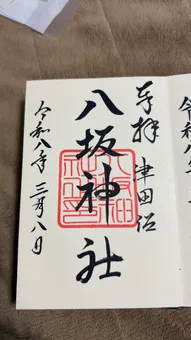 奉拝 津田沼
八坂神社
令和八年三月八日